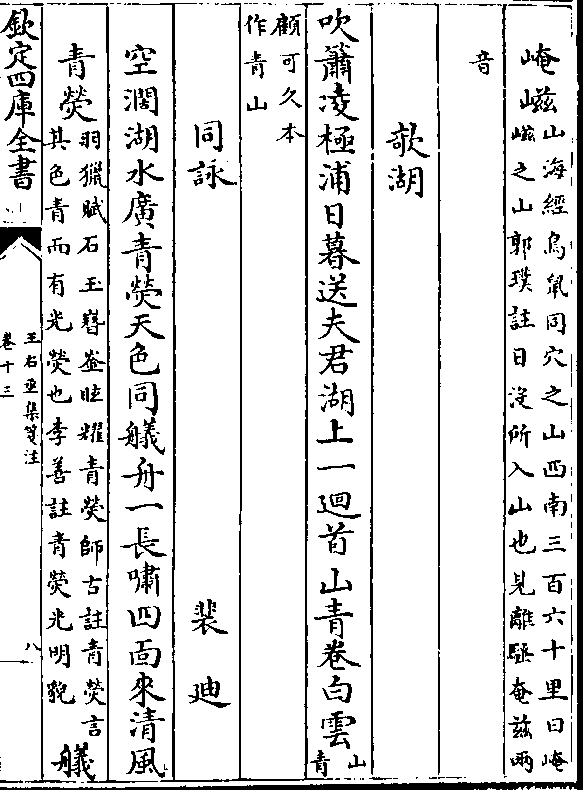 崦嵫山海經鳥鼠同穴之山西南三百六十里曰崦
嵫之山郭璞註日沒所入山也見離騷奄兹兩
音
欹湖
吹簫凌極浦日暮送夫君湖上一迴首山青卷白雲山
青
顧可久本
作青山
同詠 裴迪
空濶湖水廣青熒天色同艤舟一長嘯四面來清風
青熒羽獵賦石玉嶜崟眩耀青熒師古註青熒言
其色青而有光熒也李善註青熒光明貌 艤
欽定四庫全書
王右丞集箋注
卷十三
八